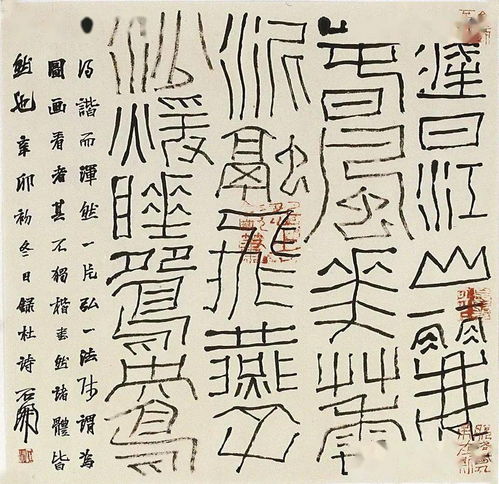 遲日江山麗
春風花草
泥融飛燕子
沙暖睡鴛鴦
得諧而渾然一片弘一法师謂為
圖画看者其不獨楷書然諸體皆
然也辛卯初冬日錄杜詩石開